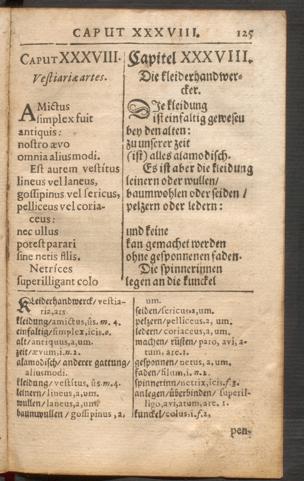 CAPUT XXXVIII. 125
CAPUT XXXVIII.
Vestiariæ artes.
AMictus
simplex fuit
antiquis:
nostro ævo
omnia aliusmodi.
Est autem vestitus
lineus vel laneus,
gossipinus vel sericus,
pelliceus vel coria-
ceus:
nec ullus
potest parari
sine netis filis.
Netrices
superilligant colo
Capitel XXXVIII.
Die kleiderhandwer-
cker.
DJe kleidung
ist einfaltig gewesen
bey den alten:
zu unserer zeit
(ist) alles alamodisch.
Es ist aber die kleidung
leinern oder wullen/
baumwohlen oder seiden/
pelzern oder ledern:
und keine
kan gemachet werden
ohne gesponnenen faden.
Die spinnerinnen
legen an die kunckel
Kleiderhandwerck/ vestia-
ria, ars.
kleidung/amictus, ûs. m. 4.
einfaltig/simplex, icis. o.
alt/antiquus, a, um.
zeit/ævum, i. n. 2.
alamodisch/ anderer gattung/
aliusmodi.
kleidung/vestitus, ûs. m. 4.
leinern/lineus, a, um.
wullen/laneus, a, um.
baumwullen/ gossipinus, a.
um.
seiden/sericus, a, um.
pelzern/pelliceus, a, um.
ledern/coriaceus, a, um.
machen/ rüsten/ paro, avi, a-
tum, are. 1.
gesponnen/netus, a, um.
faden/filum, i. n. 2.
spinnerinn/netrix, icis. f. 3.
anlegen/überbinden/ superil-
ligo, avi, atum, are. 1.
kunckel/colus, i. f. 2.
pen-